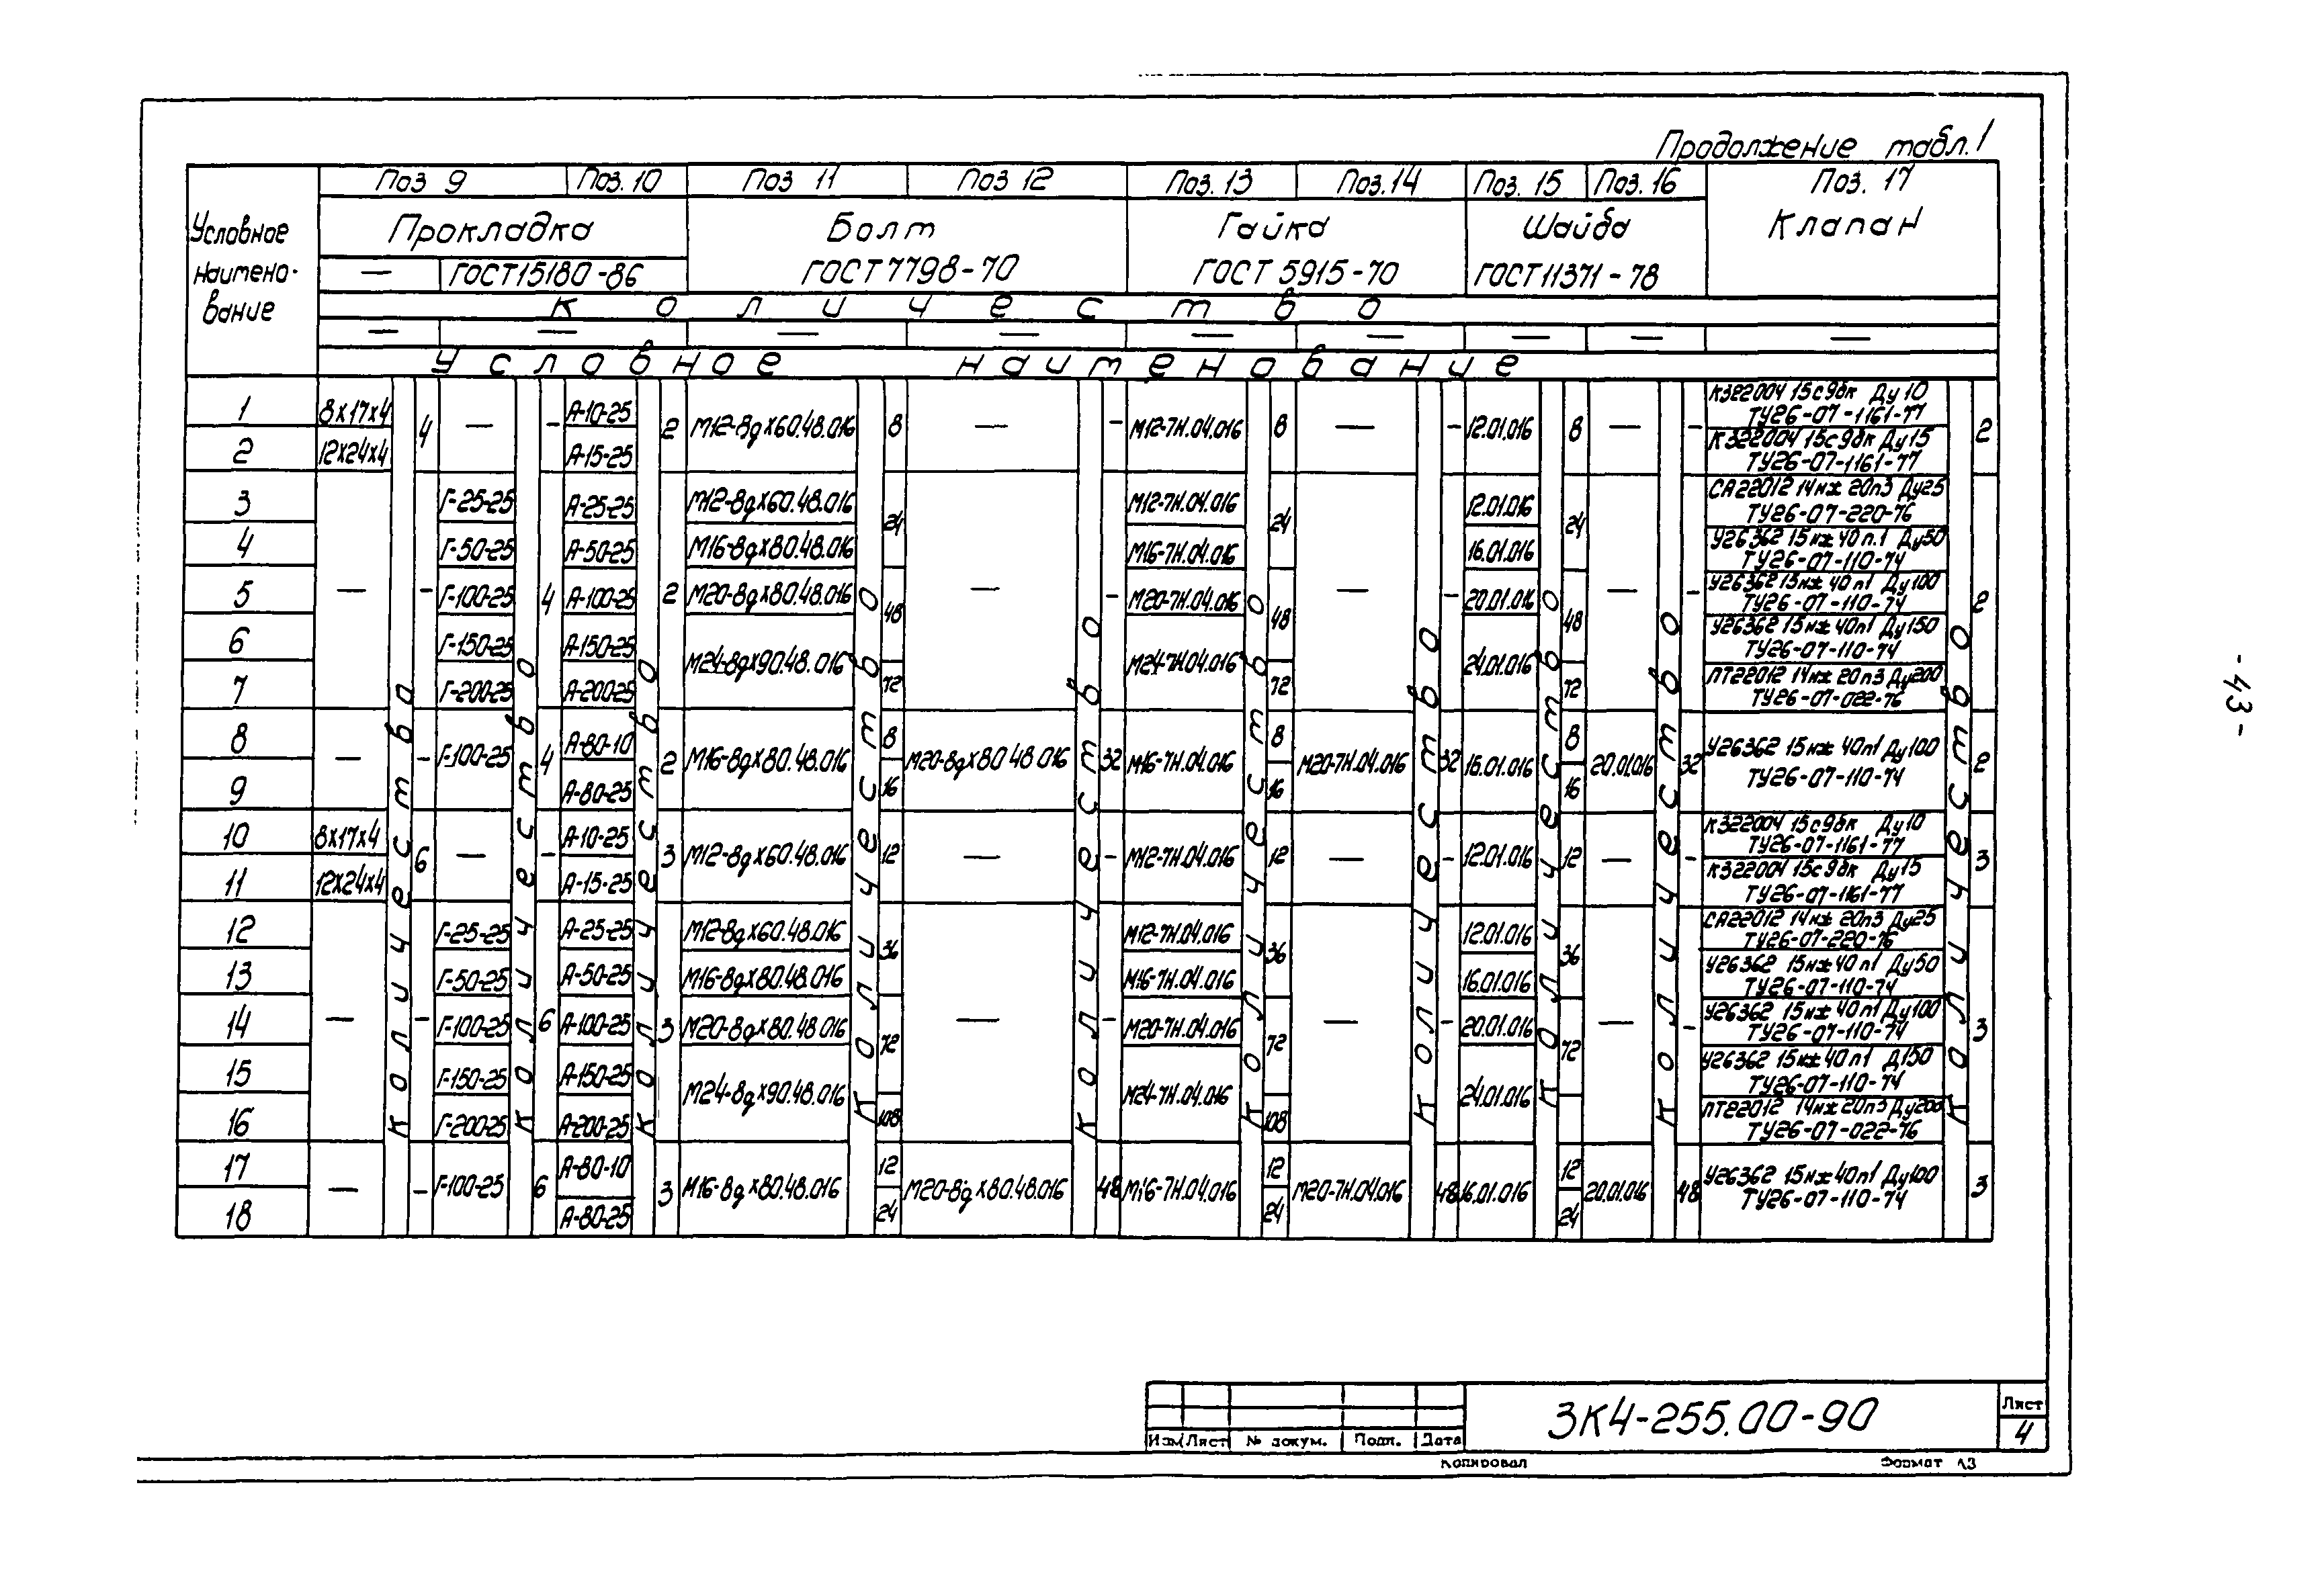 Продолжение табл. 1
Условное наимено-вание
Поз 9 Поз. 10 Поз 11 Поз 12 Поз. 13 Поз. 14 Поз. 15 Поз. 16 Поз. 17
Прокладка Болт Гайка Шайба Клапан
— ГОСТ 15180-86 ГОСТ 7798-70 ГОСТ 5915-70 ГОСТ 11371-78
Количество
— — — — — — — — —
Условное наименование
Количество Количество Количество Количество Количество Количество Количество Количество Количество Количество
1 8х17х4 4 — - А-10-25 2 М12-8дх60.48.016 8 — - М12-7Н.04.016 8 — - 12.01.016 8 — - К322004 15с9бк Ду 10
ТУ26-07-1161-77 2
2 12х24х4 А-15-25 К322004 15с9бк Ду15
ТУ26-07-1161-77
3 Г-25-25 А-25-25 М12-8дх60.48.016 24 М12-7Н.04.016 24 12.01.016 24 СА22012 14нж 20п3 Ду25
ТУ26-07-220-76
4 Г-50-25 А-50-25 М16-8дх80.48.016 М16-7Н.04.016 16.01.016 У26362 15нж 40 п.1 Ду50
ТУ26-07-110-74
5 — - Г-100-25 4 А-100-25 2 М20-8дх80.48.016 48 — - М20-7Н.04.016 48 — - 20.01.016 48 — - У26362 15нж 40п1 Ду100
ТУ26-07-110-74 2
6 Г-150-25 А-150-25 М24-8дх90.48.016 М24-7Н.04.016 24.01.016 У26362 15нж 40п1 Ду150
ТУ26-07-110-74
7 Г-200-25 А-200-25 72 72 72 ПТ22012 14нж 20п3 Ду200
ТУ26-07-022-76
8 — - Г-100-25 4 А-80-10 2 М16-8дх80.48.016 8 М20-8дх80 48 016 32 М16-7Н.04.016 8 М20-7Н.04.016 32 16.01.016 8 20.01.016 32 У26362 15нж 40п1 Ду100
ТУ26-07-110-74 2
9 А-80-25 16 16 16
10 8х17х4 6 — - А-10-25 3 М12-8дх60.48.016 12 — - М12-7Н.04.016 12 — - 12.01.016 12 — - К322004 15с9бк Ду10
ТУ26-07-1161-77 3
11 12х24х4 А-15-25 К322004 15с9бк Ду15
ТУ26-07-1161-77
12 Г-25-25 А-25-25 М12-8дх60.48.016 36 М12-7Н.04.016 36 12.01.016 36 СА22012 14нж 20п3 Ду25
ТУ26-07-220-76
13 Г-50-25 А-50-25 М16-8дх80.48.016 М16-7Н.04.016 16.01.016 У26362 15нж 40 п1 Ду50
ТУ26-07-110-74
14 — - Г-100-25 6 А-100-25 3 М20-8дх80.48.016 72 — - М20-7Н.04.016 72 — - 20.01.016 72 — - У26362 15нж 40п1 Ду100
ТУ26-07-110-74 3
15 Г-150-25 А-150-25 М24-8дх90.48.016 М24-7Н.04.016 24.01.016 У26362 15нж 40п1 Д150
ТУ26-07-110-74
16 Г-200-25 А-200-25 108 108 ПТ22012 14нж 20п3 Ду200
ТУ26-07-022-76
17 — - Г-100-25 6 А-80-10 3 М16-8дх80.48.016 12 М20-8дх80.48.016 48 М16-7Н.04.016 12 М20-7Н.04.016 48 16.01.016 12 20.01.016 48 У26362 15нж 40п1 Ду100
ТУ26-07-110-74 3
18 А-80-25 24 24 24
-43-
Изм Лист № докум. Подп. Дата
ЗК4-255.00-90
Лист
4
Копировал Формат А3